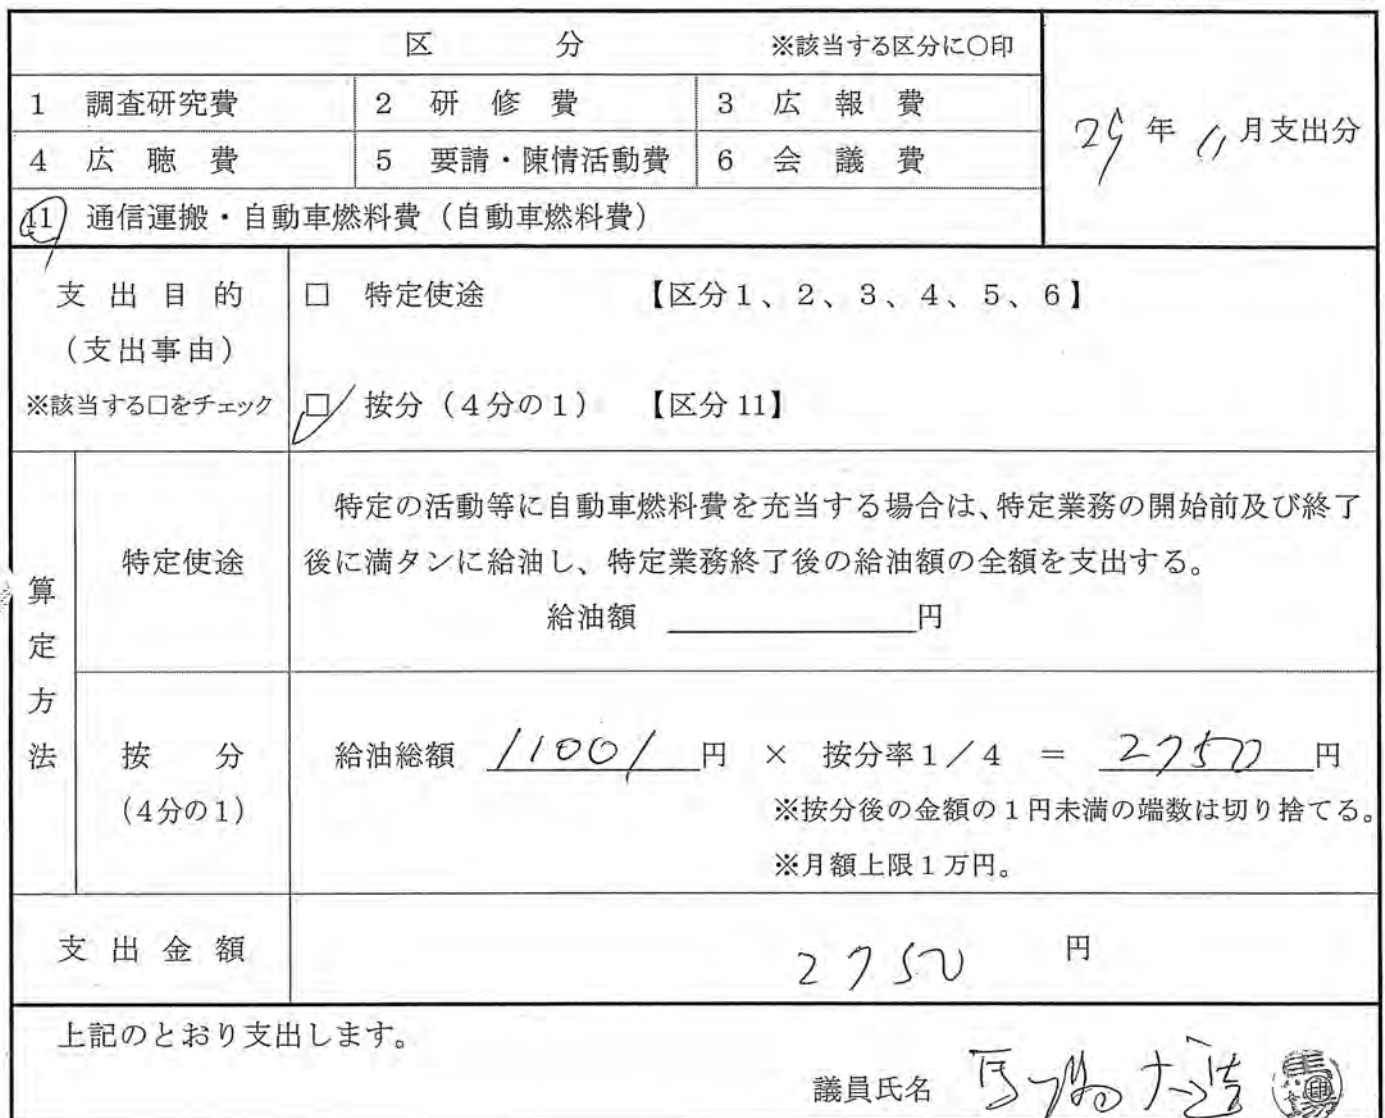 区 分 ※該当する区分に○印
1 調査研究費 2 研 修 費 3 広 報 費
29年 11月支出分
4 広 聴 費 5 要請・陳情活動費 6 会 議 費
11 通信運搬・自動車燃料費(自動車燃料費)
支 出 目 的
(支出事由)
※該当する□をチェック
□ 特定使途 【区分1、2、3、4、5、6】
□ 按分(4分の1) 【区分11】
算定方法
特定使途
特定の活動等に自動車燃料費を充当する場合は、特定業務の開始前及び終了
後に満タンに給油し、特定業務終了後の給油額の全額を支出する。
給油額 円
按 分
(4分の1)
給油総額 11001 円 × 按分率1/4 = 2750 円
※按分後の金額の1円未満の端数は切り捨てる。
※月額上限1万円。
支 出 金 額 2750 円
上記のとおり支出します。
議員氏名